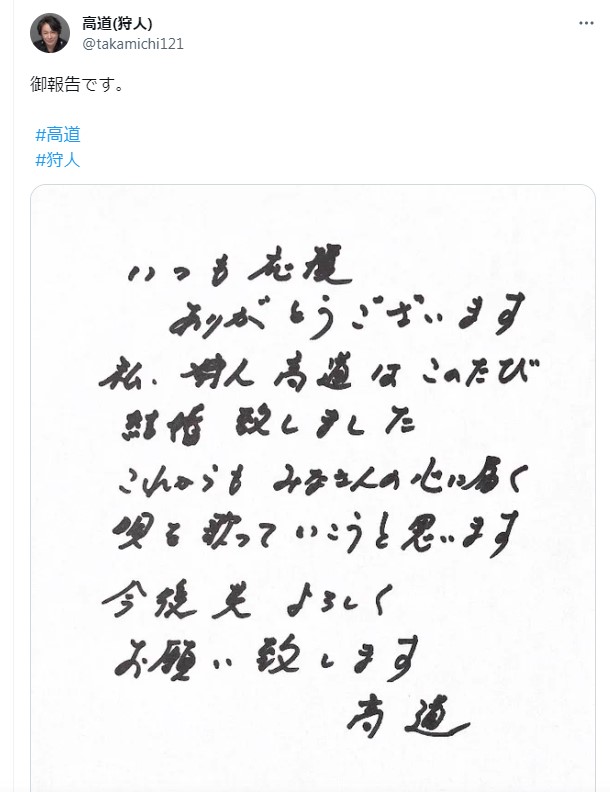 高道(狩人)
@takamichi121
御報告です。
#高道
#狩人
いつも応援
ありがとうございます
私、狩人 高道は このたび
結婚 致しました
これからも みなさんの心に届く
唄を 歌って いこうと 思います
今後共 よろしく
お願い 致します
高道